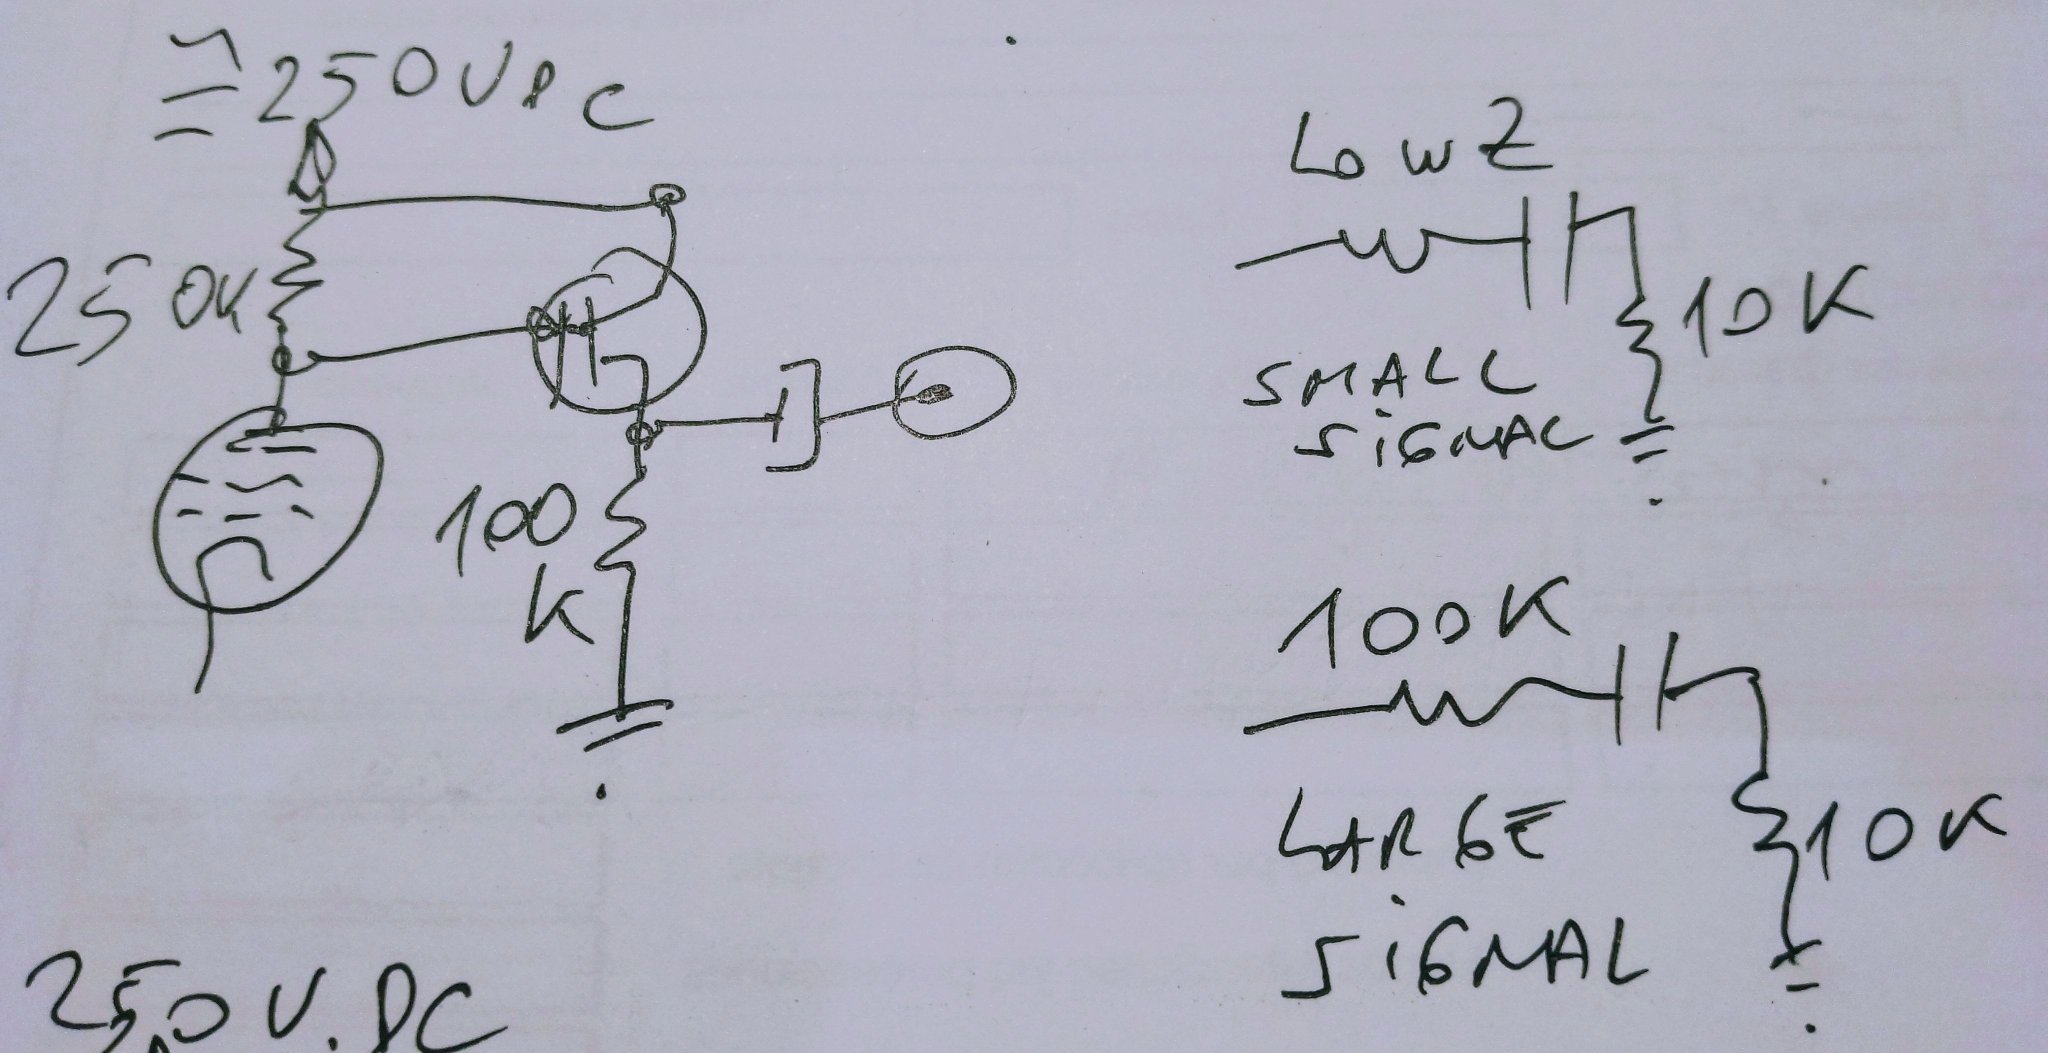 ≅250VDC
250K
100
K
LOW Z
10K
SMALL
SIGNAL
100K
10K
LARGE
SIGNAL
250V.DC